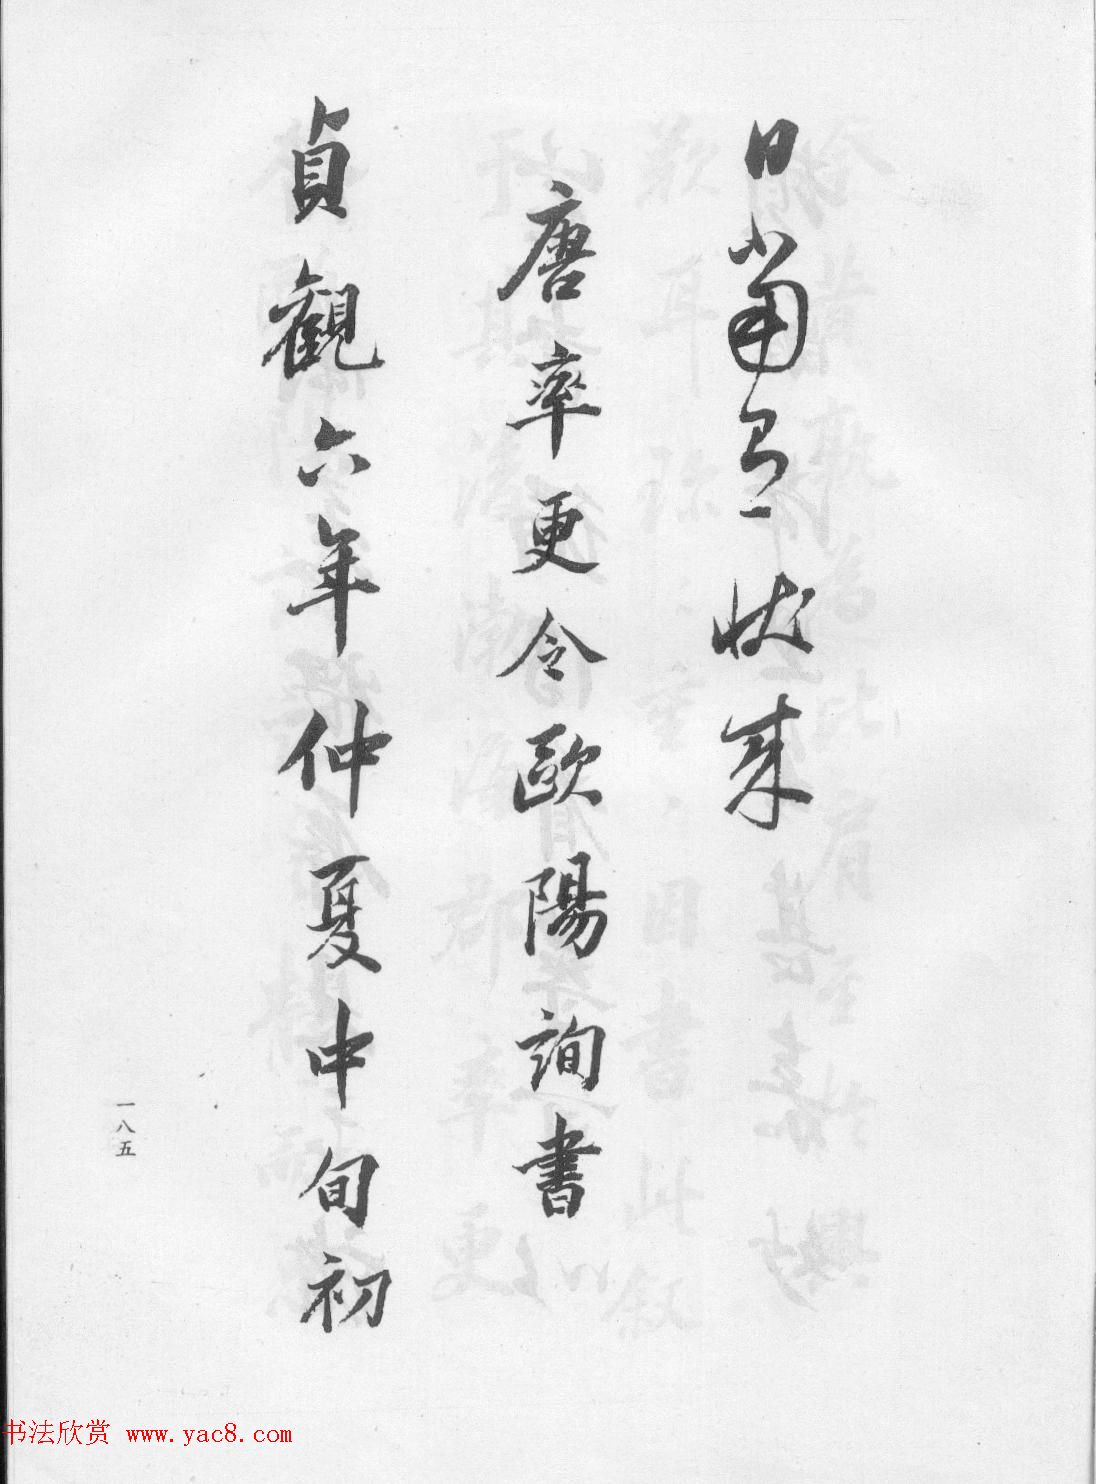 日當有一狀来
唐率更令歐陽詢書
貞觀六年仲夏中旬初
一八五
书法欣赏 www.yac8.com